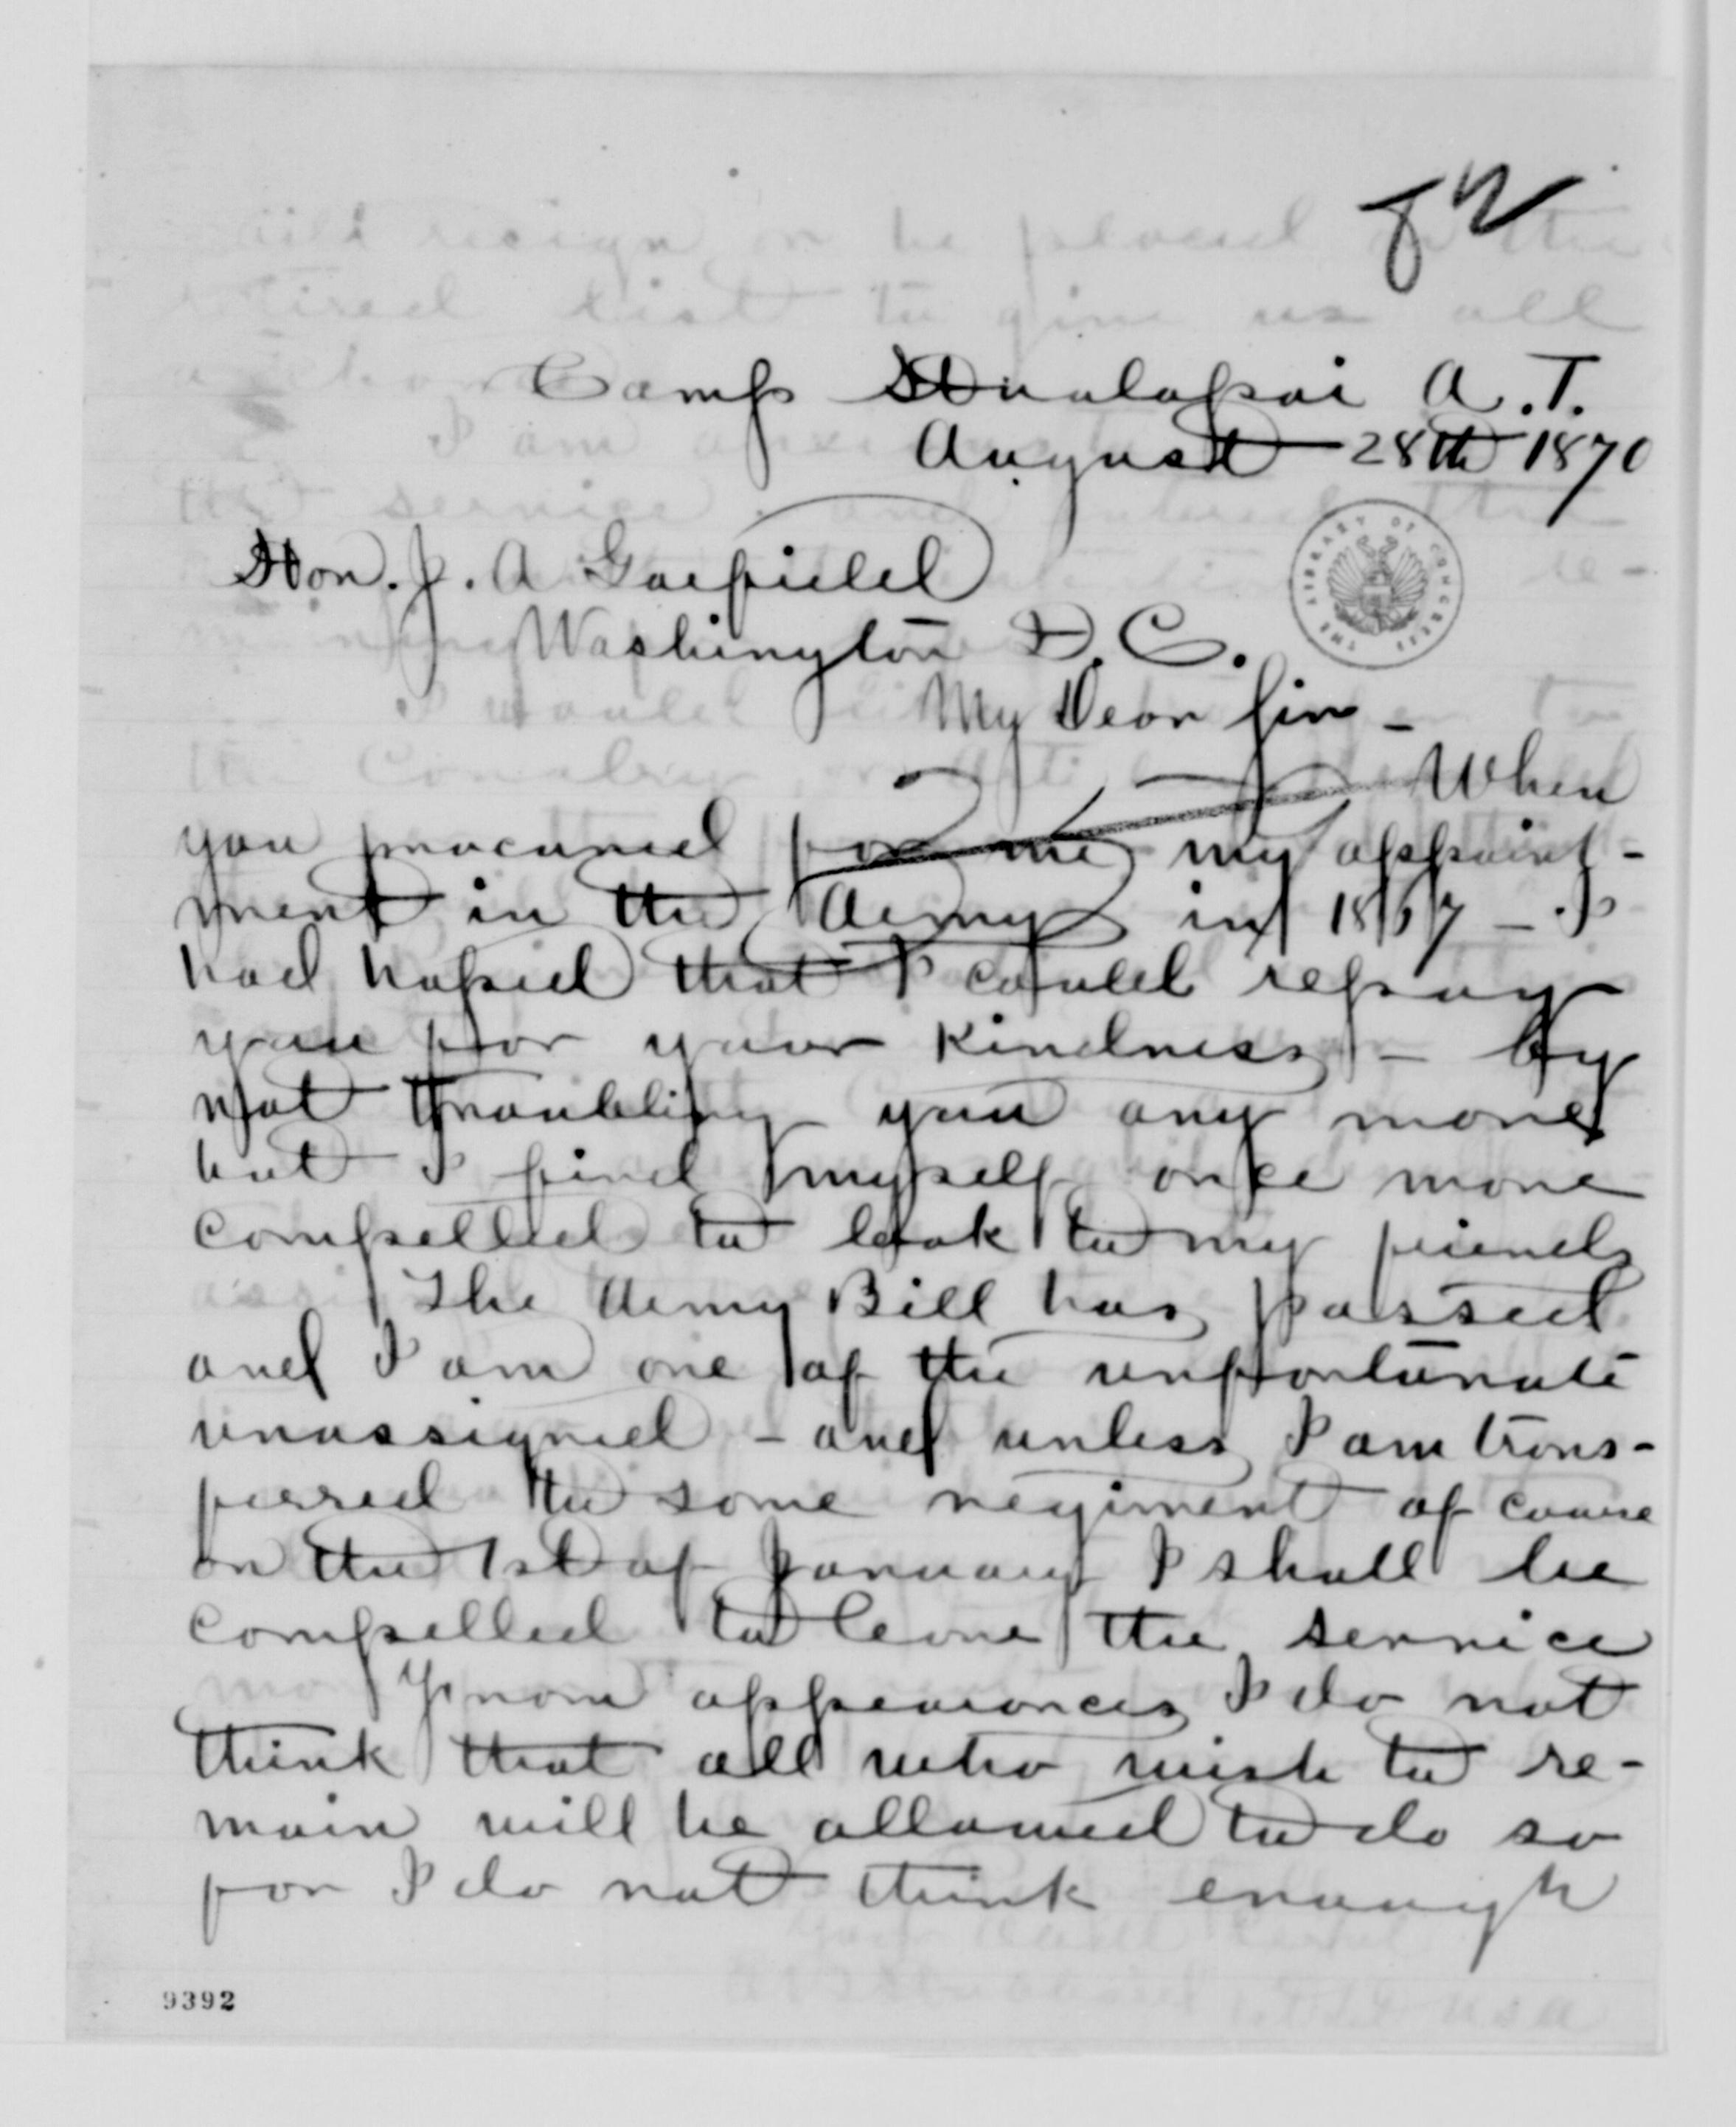 Camp Hualapai A.T.
August 28th 1870
Hon. J. A Garfield
Washington D.C.
My Dear Sir –
When
you procured for me my appoint-
ment in the Army in 1867 – I
had hoped that I could repay
you for your kindness – by
not troubling you any more
but I find myself once more
compelled to look to my friends
The Army Bill has passed
and I am one of the unfortunate
unassigned – and unless I am trans-
ferred to some regiment of course
on the 1st of January I shall be
compelled to leave the service
From appearances I do not
think that all who wish to re-
main will be allowed to do so
for I do not think enough
THE LIBRARY OF CONGRESS
9392